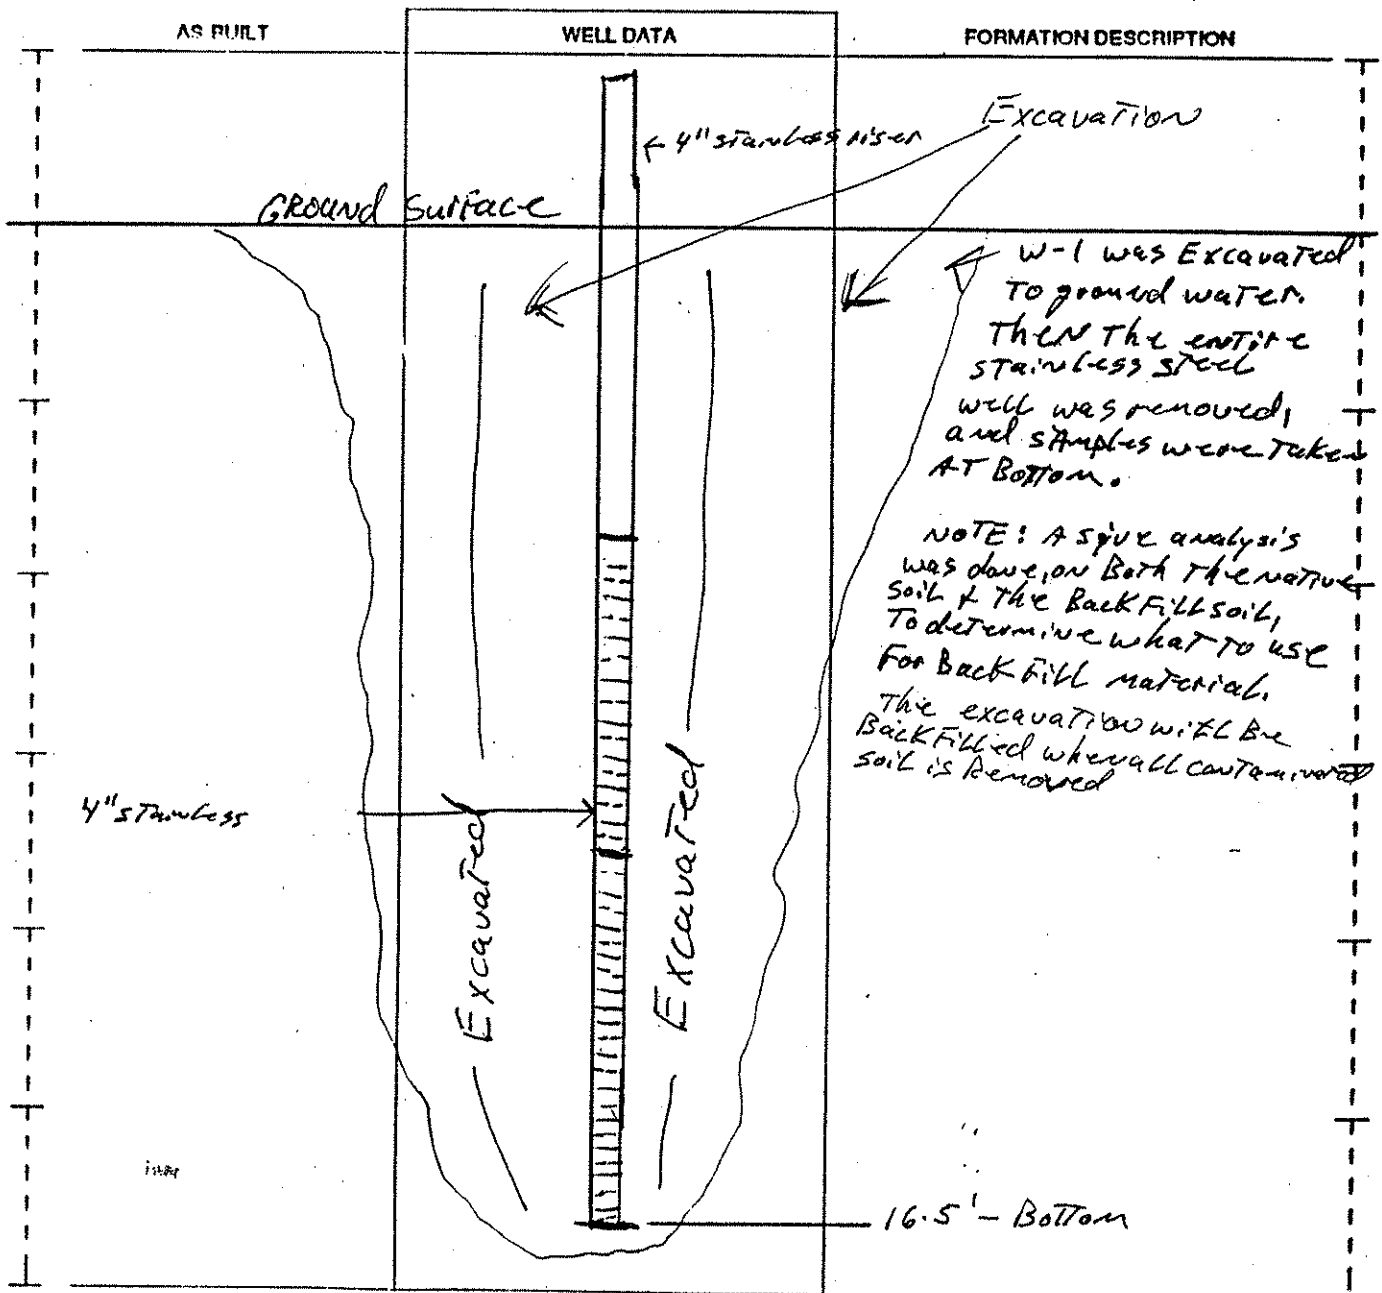 AS BUILT
WELL DATA
FORMATION DESCRIPTION
Excavation
← 4" stainless riser
GROUND Surface
W-1 was Excavated
To ground water.
Then The entire
stainless steel
well was removed,
and samples were Taken
AT Bottom.
NOTE: A sive analysis
was done, on Both The native
soil + The BackFill soil,
To determine what To use
For BackFill material.
The excavation will Be
BackFilled when all contaminated
soil is Removed
4" stainless
Excavated
Excavated
16.5' - Bottom